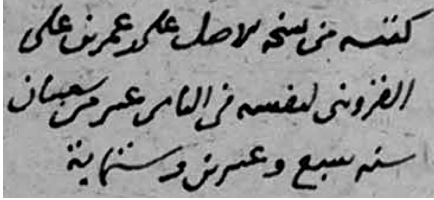 كتبه من نسخة الاصل على بن عمر بن على
القزوينى لنفسه فى الثامن عشر من شعبان
سنه سبع وعشرين وستماية